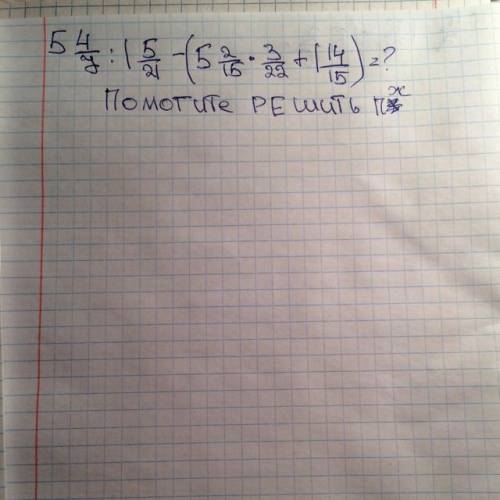 5 4/7 : 1 5/21 - (5 2/15 · 3/22 + 1 14/15) = ?
ПОМОГИТЕ РЕШИТЬ ПЖ